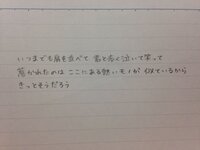 いつまでも肩を並べて 雲と歩く泣いて笑って
惹かれたのは ここにある熱いモノが 似ているから
きっとそうだろう